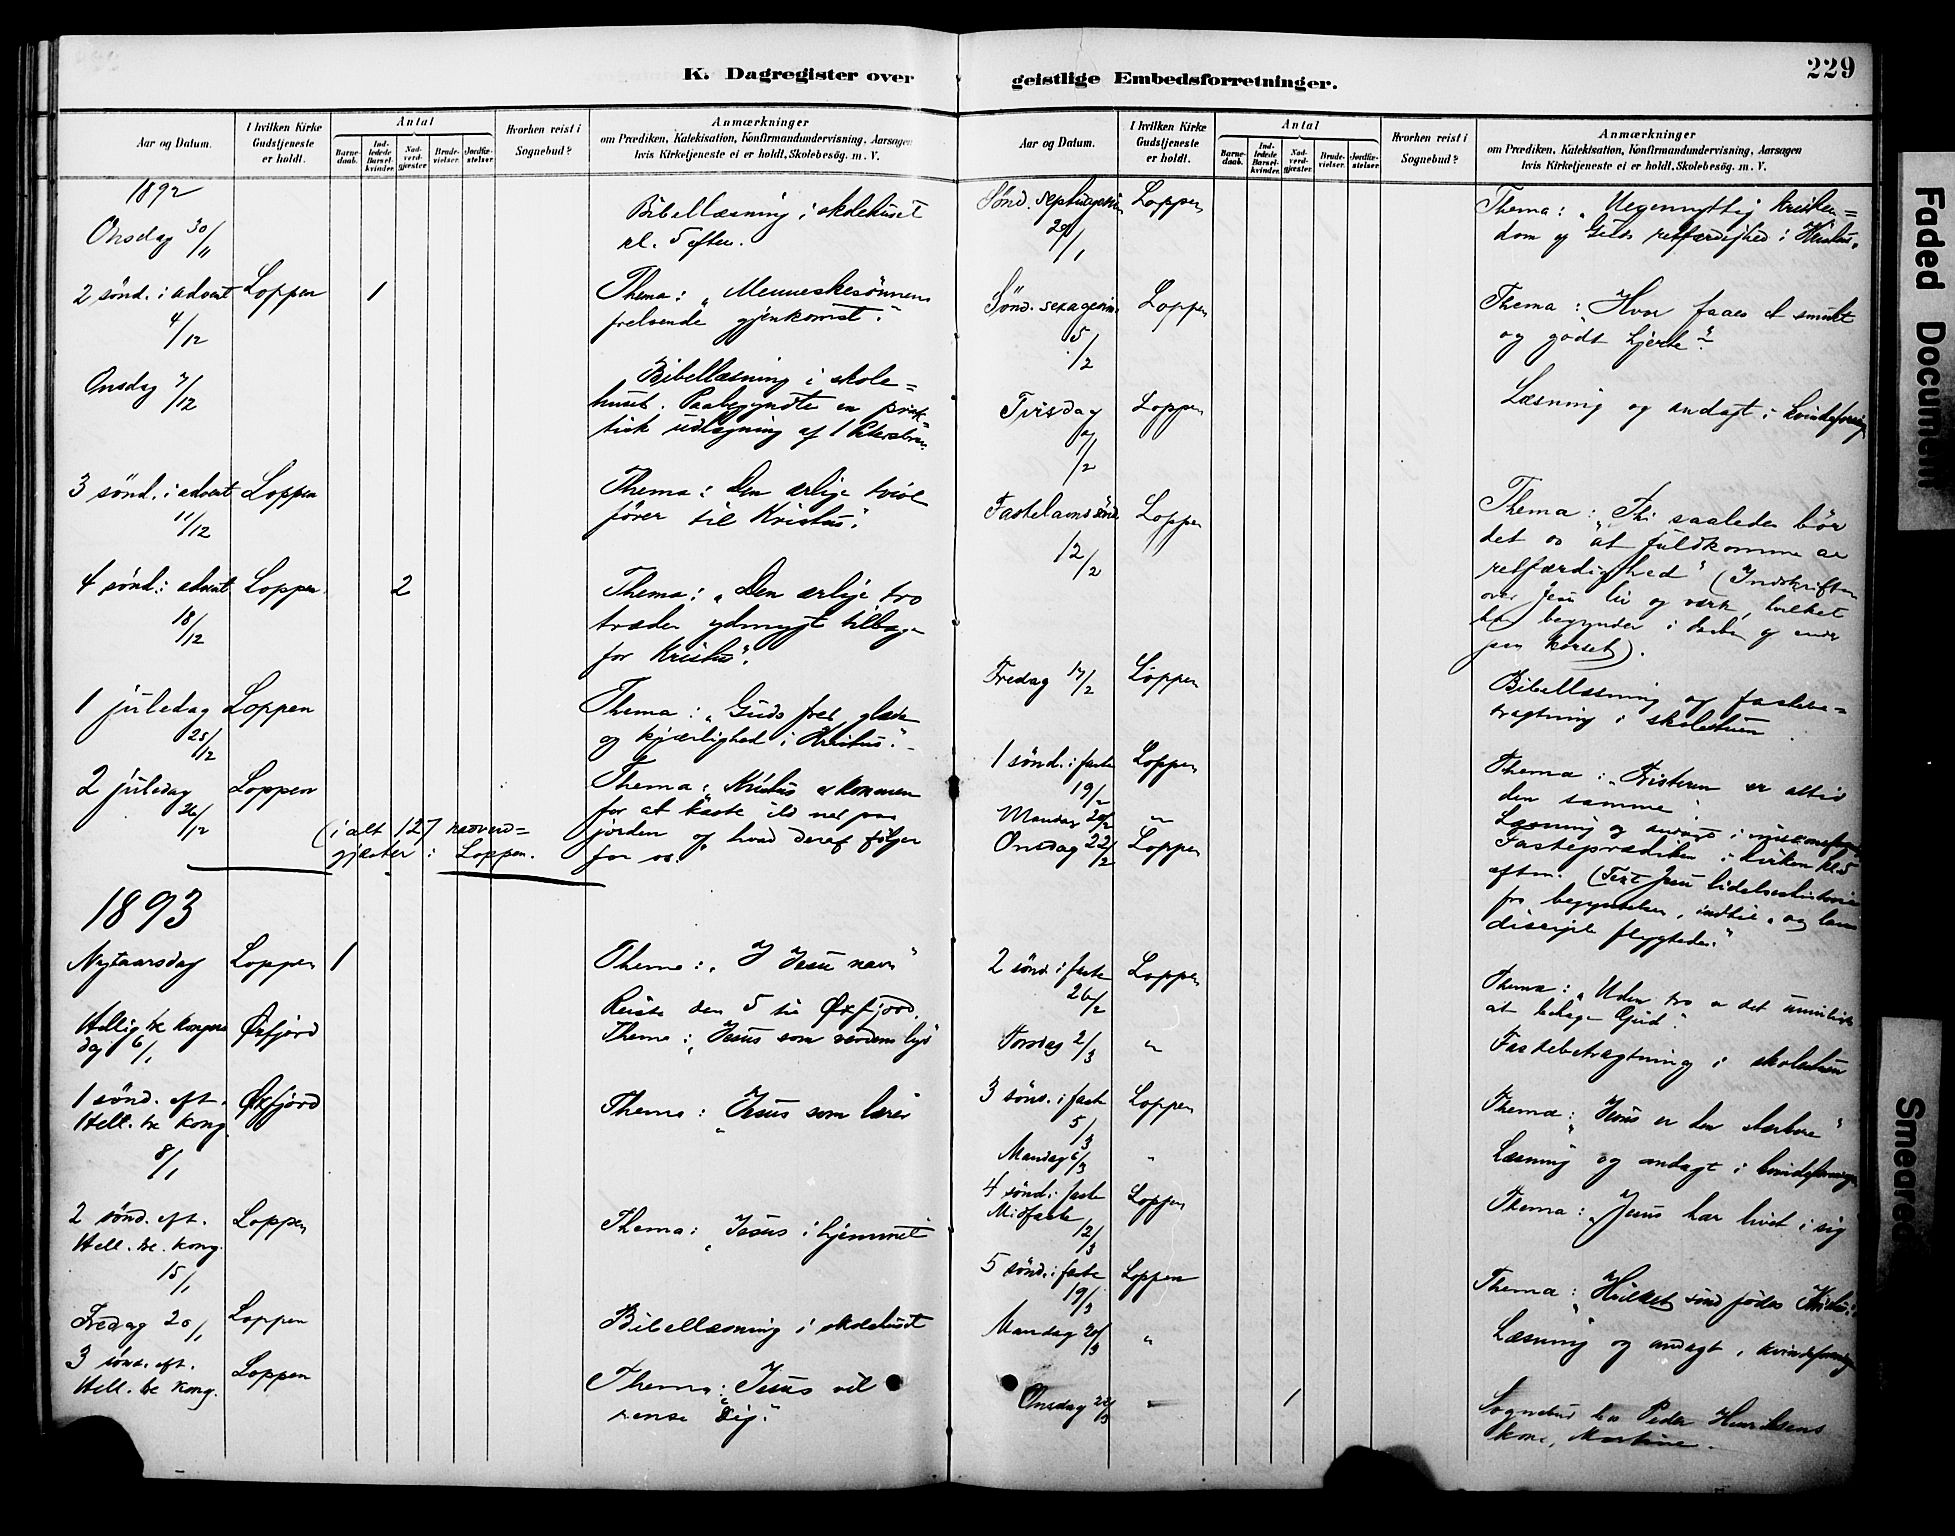 K. Dagregister over geistlige Embedsforretninger.
229
Aar og Datum.
I hvilken Kirke Gudstjeneste er holdt.
Antal
Barne-daab.
Ind-ledede Barsel-kvinder.
Nad-verd-gjester
Brude-vielser.
Jordfæ-stelser.
Hvorhen reist i Sognebud?
Anmærkninger
om Prædiken, Katekisation, Konfirmandundervisning, Aarsagen
hvis Kirketjeneste ei er holdt, Skolebesög. m. V.
1892
Onsdag 30/11
Bibellæsning i skolehuset
kl. 5 efter.
2 sönd. i advent Loppen 1
4/12
Thema: „Menneskesönnens
frelsende gjenkomst."
Onsdag 7/12
Bibellæsning i skole=
huset. Paabegyndte en prak=
tisk udlægning af 1 Petersbrev
3 sönd. i advent Loppen
11/12
Thema: Den ærlige tvivl
förer til Kristus."
4 sönd. i advent Loppen 2
18/12
Thema: „Den ærlige tro
træder ydmygt tilbage
for Kristus".
1 juledag Loppen
25/12
Thema: „Guds fred, glæde
og kjærlighed i Kristus."
2 juledag Loppen
26/12
Thema: „Kristus er kommen
for at kaste ild ned paa
jorden og hvad deraf fölger
for os.
(i alt 127 nadverd=
gjæster i Loppen.
1893
Nytaarsdag Loppen 1
Thema: „I Jesu navn"
Reiste den 5 til Øxfjord.
Hellig tre konger
dag 6/1 Øxfjord
Thema: „Jesus som verdens lys
1 sönd. eft. Øxfjord
Hell. tre kong.
8/1
Thema: „Jesus som lærer
2 sönd. eft. Loppen
Hell. tre. kong.
15/1
Thema: „Jesus i hjemmet
Fredag 20/1 Loppen
Bibellæsning i skolehuset
3 sönd. eft. Loppen
Hell. tre kong.
Thema: „Jesus vil
rense dig."
Aar og Datum.
I hvilken Kirke Gudstjeneste er holdt.
Antal
Barne-daab.
Ind-ledede Barsel-kvinder.
Nad-verd-gjester.
Brude-vielser.
Jordfæ-stelser.
Hvorhen reist i Sognebud?
Anmærkninger
om Prædiken, Katekisation, Konfirmandundervisning, Aarsagen
hvis Kirketjeneste ei er holdt, Skolebesög. m. V.
Sönd. septuagesima Loppen
29/1
Thema: „Uegennyttig kristen=
dom og Guds retfærdighed i Kristus."
Sönd. sexagesima Loppen
5/2
Thema: „Hvor faaes et smukt
og godt hjerte?"
Tirsdag Loppen
/2
Læsning og andagt i kvindeforening
Fastelavnssönd. Loppen
12/2
Thema: „Thi saaledes bör
det os at fuldkomme al
retfærdighed" (Indskriften
over Jesu liv og værk, hvilket
begynder i daaben og ender
paa korset).
Fredag 17/2 Loppen
Bibellæsning og fastebe=
tragtning i skolestuen
1 sönd. i faste Loppen
19/2
Thema: „Fristeren er altid
den samme"
Mandag 20/2 "
Læsning og andagt i missionsforen
Onsdag 22/2 Loppen
Fasteprædiken i kirken kl. 5
efterm. (Text Jesu lidelseshistorie
fra begyndelsen, indtil „og hans
disciple flygtede."
2 sönd i faste Loppen
26/2
Thema: „Uden tro er det umuligt
at behage Gud".
Torsdag 2/3 "
Fastebetragtning i skolestuen
3 sönd. i faste Loppen
5/3
Thema: „Jesus er den stærkere"
Mandag 6/3 "
Læsning og andagt i kvindeforening
4 sönd. i faste Loppen
Midfaste
12/3
Thema: „Jesus har livet i sig
5 sönd. i faste Loppen
19/3
Thema: „Hvilket sind födes
Mandag 20/3 "
Læsning og andagt i kvindeforening
Onsdag 22/3 " 1
Sognebud hos Peder Henriksens
kone, Martine.
Faded Document
Smeared